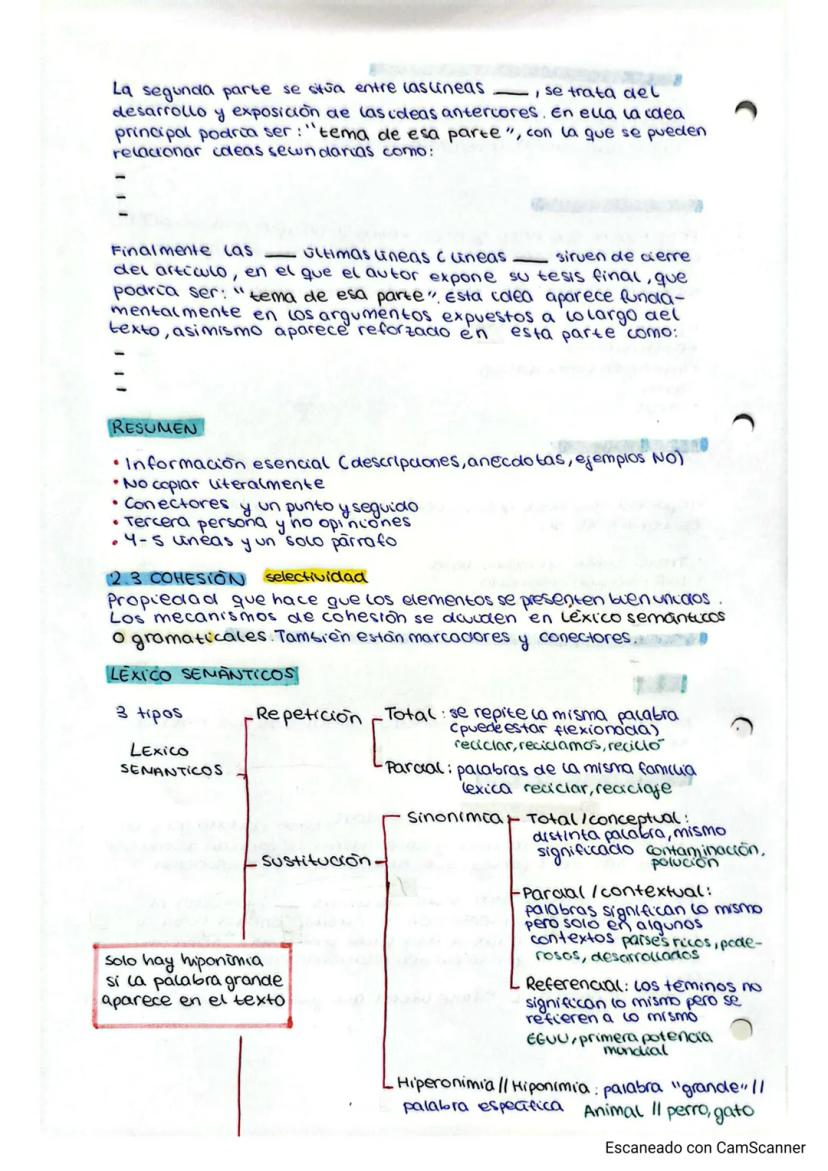 La segunda parte se sitúa entre las lineas ___, se trata del
desarrollo y exposición de las ideas anteriores. En ella la idea
principal podría ser: "tema de esa parte", con la que se pueden
relacionar ideas secundarias como:
-
-
-
Finalmente las ___ últimas líneas (líneas ___ sirven de cierre
del artículo, en el que el autor expone su tesis final, que
podría ser: "tema de esa parte". Esta idea aparece funda-
mentalmente en los argumentos expuestos a lo largo del
texto, asimismo aparece reforzado en esta parte como:
-
-
-
RESUMEN
• Información esencial (descripciones, anécdotas, ejemplos NO)
• No copiar literalmente
• Conectores y un punto y seguido
• Tercera persona y no opiniones
• 4-5 líneas y un solo párrafo
2.3 COHESIÓN selectividad
Propiedad que hace que los elementos se presenten bien unidos.
Los mecanismos de cohesión se dividen en léxico semánticos
o gramaticales. También están marcadores y conectores.
LÉXICO SEMÁNTICOS
3 tipos
LEXICO
SEMANTICOS
Repetición
Total: se repite la misma palabra
(puede estar flexionada)
reciclar, reciclamos, reciclo
Parcial: palabras de la misma familia
léxica reciclar, reciclaje
Sustitución
Sinonimia
Total/conceptual:
distinta palabra, mismo
significado contaminación,
polución
Parcial/contextual:
palabras significan lo mismo
pero solo en algunos
contextos países ricos, pode-
rosos, desarrollados
Referencial: los téminos no
significan lo mismo pero se
refieren a lo mismo
EEUU, primera potencia
mundial
Solo hay hiponimia
si la palabra grande
aparece en el texto
Hiperonimia // Hiponimia: palabra "grande" //
palabra específica Animal // perro, gato
Escaneado con CamScanner